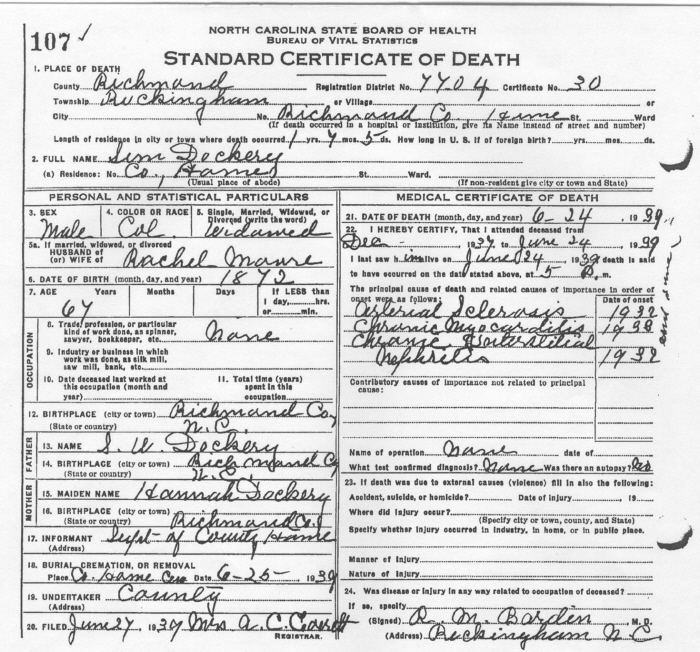 107
NORTH CAROLINA STATE BOARD OF HEALTH
BUREAU OF VITAL STATISTICS
STANDARD CERTIFICATE OF DEATH
1. PLACE OF DEATH
County Richmond Registration District No. 7704 Certificate No. 30
Township Rockingham or Village or
City No. Richmond Co. Home St. Ward
(If death occurred in a hospital or institution, give its Name instead of street and number)
Length of residence in city or town where death occurred 1 yrs. 7 mos. 5 ds. How long in U. S. if of foreign birth? yrs. mos. ds.
2. FULL NAME Sim Dockery
(a) Residence: No. Co., Home St. Ward.
(Usual place of abode) (If non-resident give city or town and State)
PERSONAL AND STATISTICAL PARTICULARS
3. SEX 4. COLOR OR RACE 5. Single, Married, Widowed, or Divorced (write the word)
Male Col. Widowed
5a. If married, widowed, or divorced
HUSBAND of
(or) WIFE of Rachel Moore
6. DATE OF BIRTH (month, day, and year) 1872
7. AGE Years Months Days If LESS than
1 day, hrs.
67 or min.
OCCUPATION
8. Trade, profession, or particular
kind of work done, as spinner,
sawyer, bookkeeper, etc. None
9. Industry or business in which
work was done, as silk mill,
saw mill, bank, etc.
10. Date deceased last worked at
this occupation (month and
year)
11. Total time (years)
spent in this
occupation
12. BIRTHPLACE (city or town) Richmond Co,
(State or country) N.C.
FATHER
13. NAME S. W. Dockery
14. BIRTHPLACE (city or town) Richmond Co
(State or country) N.C
MOTHER
15. MAIDEN NAME Hannah Dockery
16. BIRTHPLACE (city or town)
(State or country) Richmond Co.
17. INFORMANT Supt- of County Home
(Address)
18. BURIAL, CREMATION, OR REMOVAL
Place Co. Home Cem Date 6-25- 1939
19. UNDERTAKER County
(Address)
20. FILED June 27, 1939 Mrs A. C.
REGISTRAR.
MEDICAL CERTIFICATE OF DEATH
21. DATE OF DEATH (month, day, and year) 6-24 , 1939
22. I HEREBY CERTIFY, That I attended deceased from
Dec - , 1937 to June 24 , 1939
I last saw him alive on June 24 , 1939 death is said
to have occurred on the date stated above, at 5 P. m.
The principal cause of death and related causes of importance in order of
onset were as follows: Date of onset
Arterial Sclerosis 1932
Chronic Myocarditis 1938
Chronic Interstitial
Nephritis 1932
Contributory causes of importance not related to principal
cause:
Name of operation None date of
What test confirmed diagnosis? None Was there an autopsy? No
23. If death was due to external causes (violence) fill in also the following:
Accident, suicide, or homicide? Date of injury , 19
Where did injury occur?
(Specify city or town, county, and State)
Specify whether injury occurred in industry, in home, or in public place.
Manner of injury
Nature of injury
24. Was disease or injury in any way related to occupation of deceased?
If so, specify
(Signed) R. M. Bardin M. D.
(Address) Rockingham N.C.